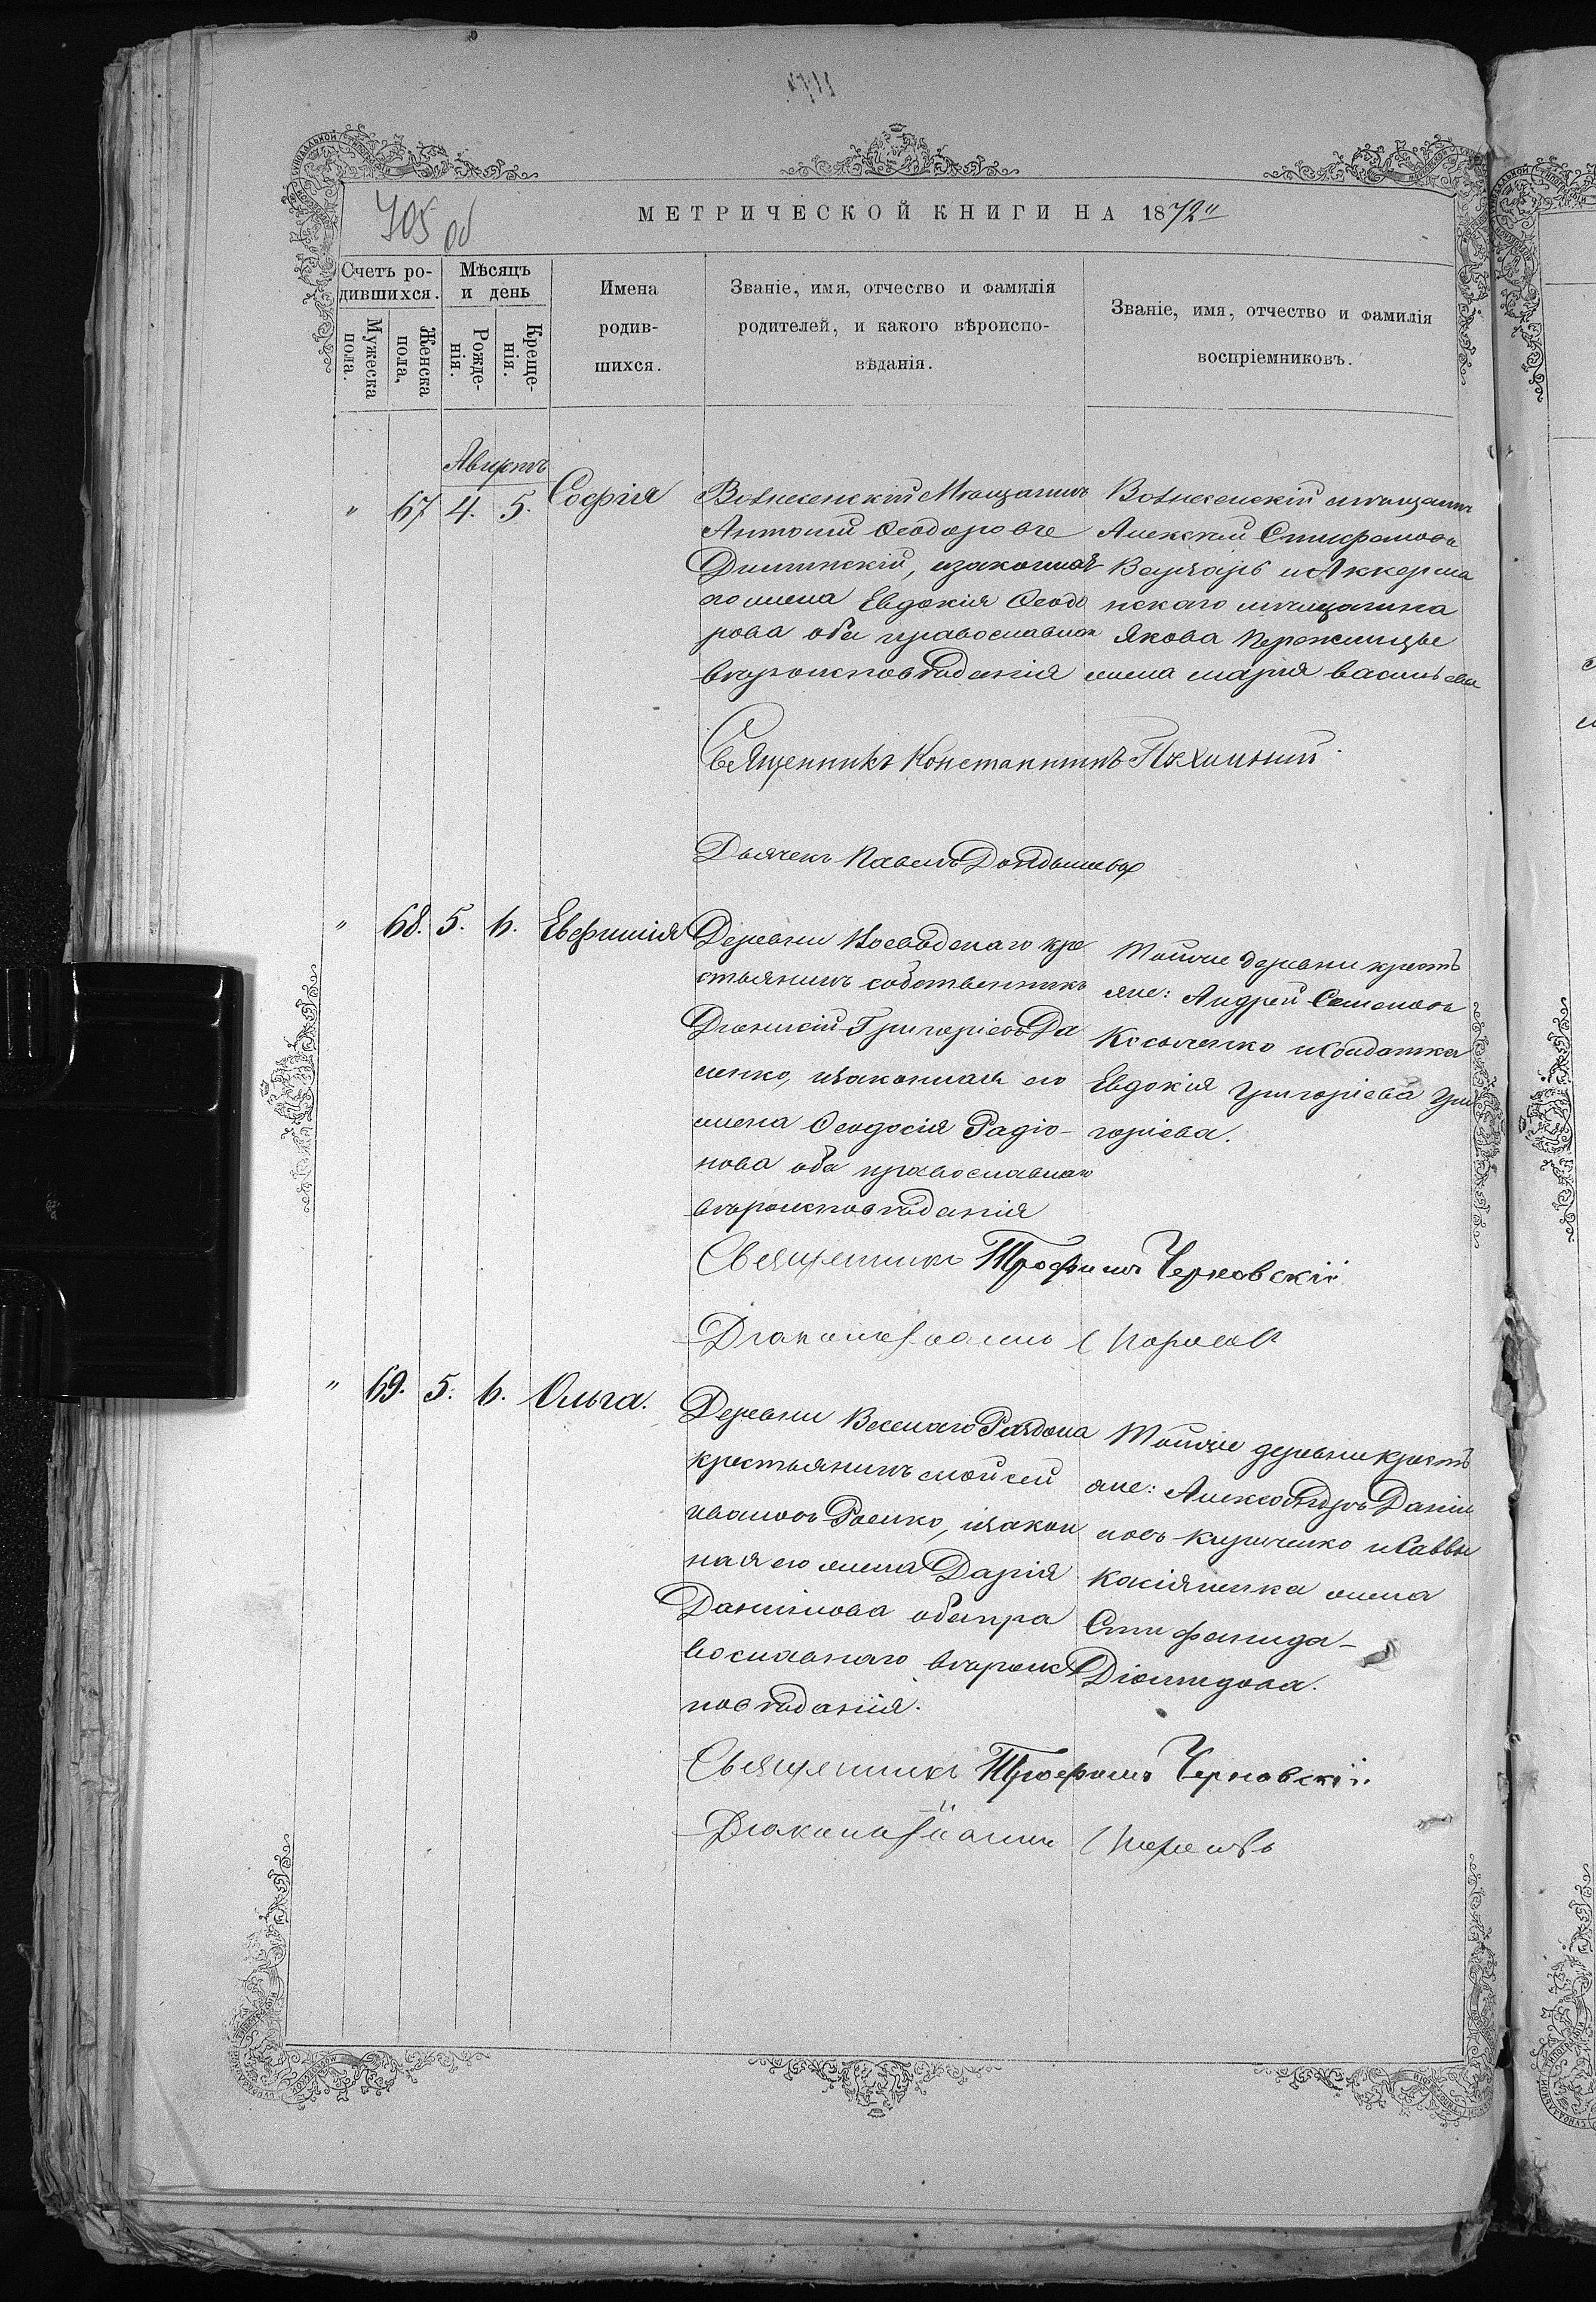 705 об
МЕТРИЧЕСКОЙ КНИГИ НА 1872
Счетъ ро-
дившихся.
Мужеска
пола.
Женска
пола,
Мѣсяцъ
и день
Рожде-
нія.
Креще-
нія.
Имена
родив-
шихся.
Званіе, имя, отчество и фамилія
родителей, и какого вѣроиспо-
вѣданія.
Званіе, имя, отчество и фамилія
воспріемниковъ.
Августъ
" 67 4. 5. Софія
Вознесенскій Мѣщанинъ
Антоній Ѳеодоровъ
изаконная
его жена Евдокія Ѳеодо
рова оба православнаго
вѣроисповѣданія
Вознесенскій мѣщанинъ
Алексѣй
и Аккерма
нскаго мѣщанина
Якова
жена марія васильева
Священникъ Константинъ
Дьячекъ Павелъ
" 68. 5. 6. Евфимія
Деревни Воеводскаго кре
стьянинъ собственникъ
Діонисій Григоріевъ Да
ценко, изаконная его
жена Ѳеодосія Радіо-
нова оба православнаго
вѣроисповѣданія
Тойже деревни кресть
яне: Андрей Семеновъ
и Солдатка
Евдокія Григоріева Гри
горіева.
Священникъ Трофимъ Черновскій
Діаконъ Іоаннъ
" 69. 5. 6. Ольга.
Деревни Веселаго Раздола
крестьянинъ мойсей
ивановъ изакон
ная его жена Дарія
Даниилова оба пра
вославнаго вѣроис
повѣданія.
Тойже деревни кресть
яне: Александръ Даніи
ловъ Кириченко и Саввы
Касіяненка жена
Стифанида-
Діомидова.
Священникъ Трофимъ Черновскій.
Діаконъ Іоаннъ